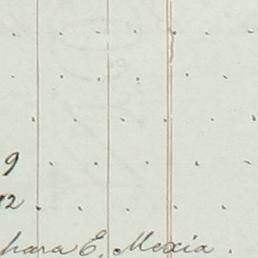 9
12 .
hara E. Mexia .